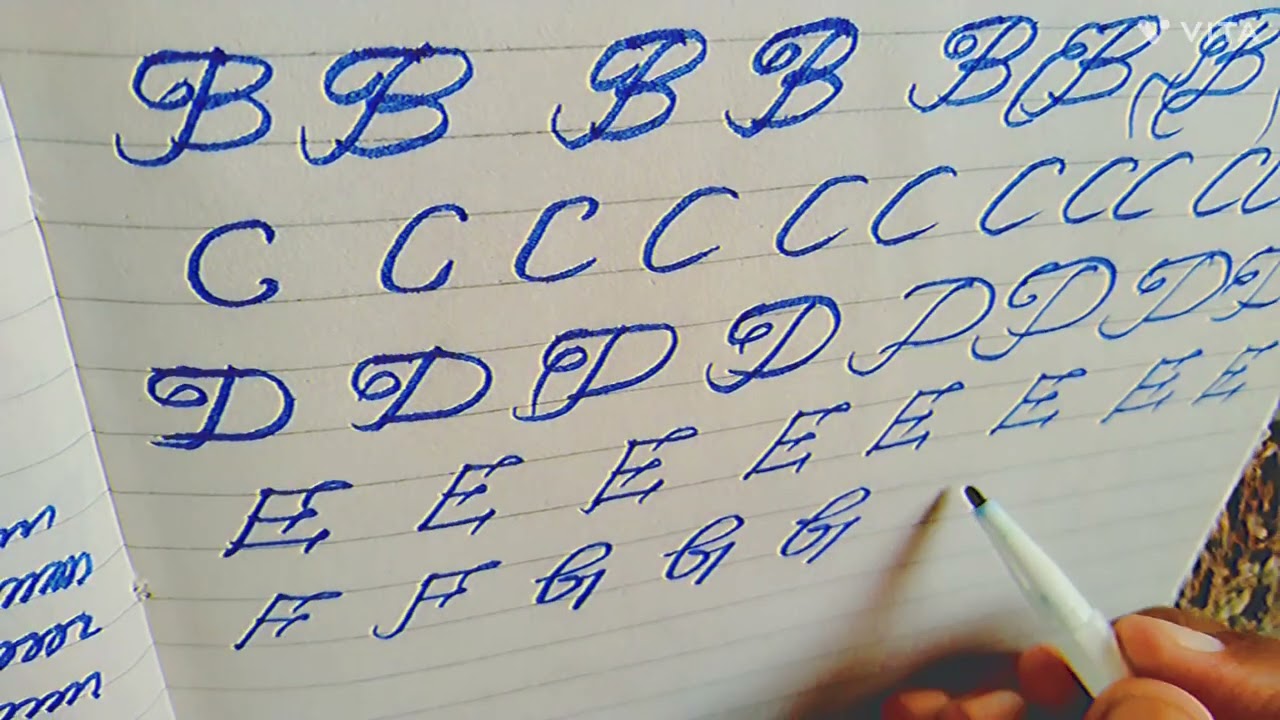 VITA
B B B B B B B
C C C C C C C C C C C
D D D D D D D D
E E E E E E E E
F F G G G